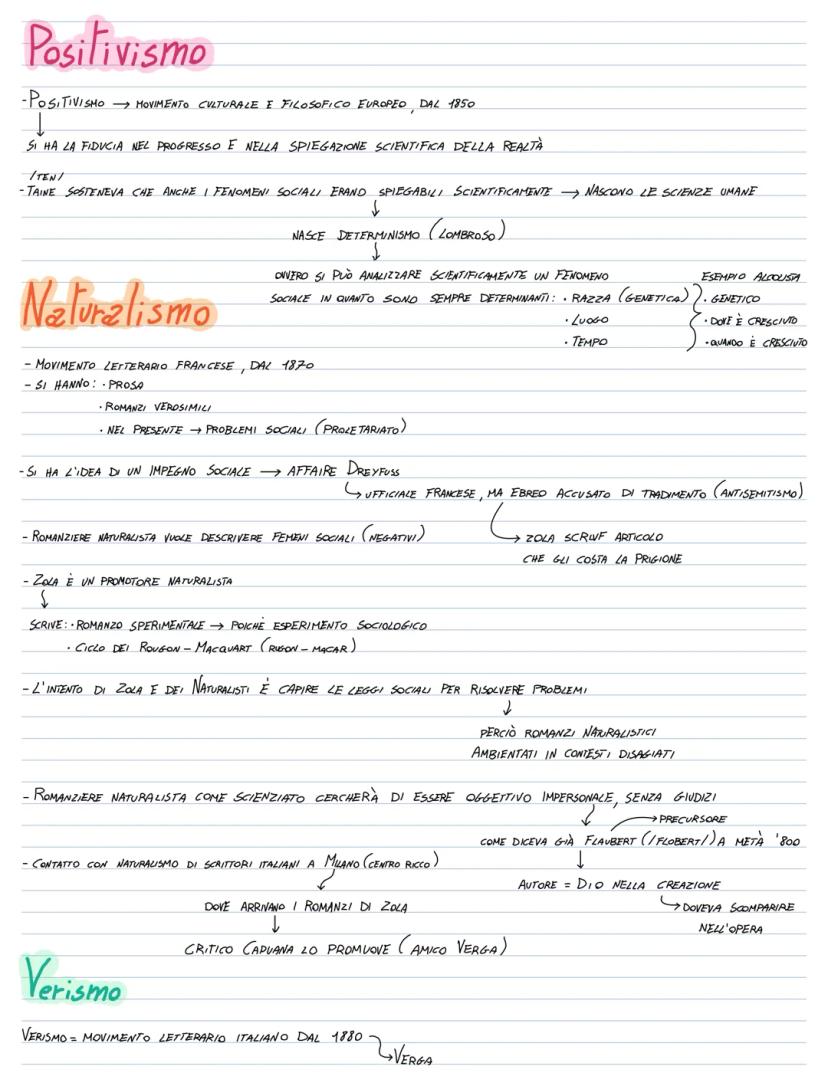 Positivismo
- POSITIVISMO → MOVIMENTO CULTURALE E FILOSOFICO EUROPEO, DAL 1850
↓
SI HA LA FIDUCIA NEL PROGRESSO E NELLA SPIEGAZIONE SCIENTIFICA DELLA REALTÀ
/TEN/
- TAINE SOSTENEVA CHE ANCHE I FENOMENI SOCIALI ERANO SPIEGABILI SCIENTIFICAMENTE → NASCONO LE SCIENZE UMANE
↓
NASCE DETERMINISMO (LOMBROSO)
↓
OVVERO SI PUÒ ANALIZZARE SCIENTIFICAMENTE UN FENOMENO
SOCIALE IN QUANTO SONO SEMPRE DETERMINANTI: • RAZZA (GENETICA)
• LUOGO
• TEMPO
ESEMPIO ALCOLISTA
• GENETICO
• DOVE È CRESCIUTO
• QUANDO È CRESCIUTO
Naturalismo
- MOVIMENTO LETTERARIO FRANCESE, DAL 1870
- SI HANNO: • PROSA
• ROMANZI VEROSIMILI
• NEL PRESENTE → PROBLEMI SOCIALI (PROLETARIATO)
- SI HA L'IDEA DI UN IMPEGNO SOCIALE → AFFAIRE DREYFUSS
↳ UFFICIALE FRANCESE, MA EBREO ACCUSATO DI TRADIMENTO (ANTISEMITISMO)
→ ZOLA SCRIVE ARTICOLO
CHE GLI COSTA LA PRIGIONE
- ROMANZIERE NATURALISTA VUOLE DESCRIVERE FEMENI SOCIALI (NEGATIVI)
- ZOLA È UN PROMOTORE NATURALISTA
↓
SCRIVE: • ROMANZO SPERIMENTALE → POICHÉ ESPERIMENTO SOCIOLOGICO
• CICLO DEI ROUGON - MACQUART (RUGON - MACAR)
- L'INTENTO DI ZOLA E DEI NATURALISTI È CAPIRE LE LEGGI SOCIALI PER RISOLVERE PROBLEMI
↓
PERCIÒ ROMANZI NATURALISTICI
AMBIENTATI IN CONTESTI DISAGIATI
- ROMANZIERE NATURALISTA COME SCIENZIATO CERCHERÀ DI ESSERE OGGETTIVO IMPERSONALE, SENZA GIUDIZI
→ PRECURSORE
COME DICEVA GIÀ FLAUBERT (/FLOBERT/) A METÀ '800
↓
AUTORE = DIO NELLA CREAZIONE
↳ DOVEVA SCOMPARIRE
NELL'OPERA
- CONTATTO CON NATURALISMO DI SCRITTORI ITALIANI A MILANO (CENTRO RICCO)
DOVE ARRIVANO I ROMANZI DI ZOLA
↓
CRITICO CAPUANA LO PROMUOVE (AMICO VERGA)
Verismo
VERISMO = MOVIMENTO LETTERARIO ITALIANO DAL 1880
↳ VERGA